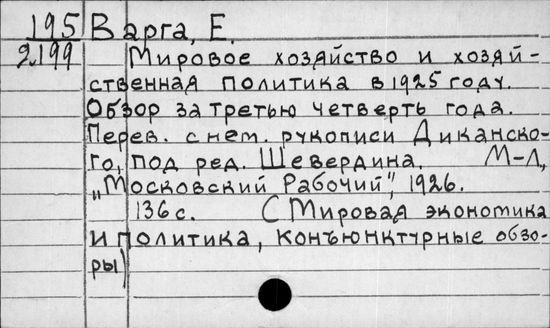 195 Варга, Е.
2199 Мировое хозяйство и хозяй-
ственная политика в 1925 году.
Обзор за третью четверть года.
Перев. с нем. рукописи Диканско-
го, под ред. Шевердина. М-Л,
„Московский Рабочий", 1926.
136 с. (Мировая экономика
и политика, конъюнктурные обзо-
ры)